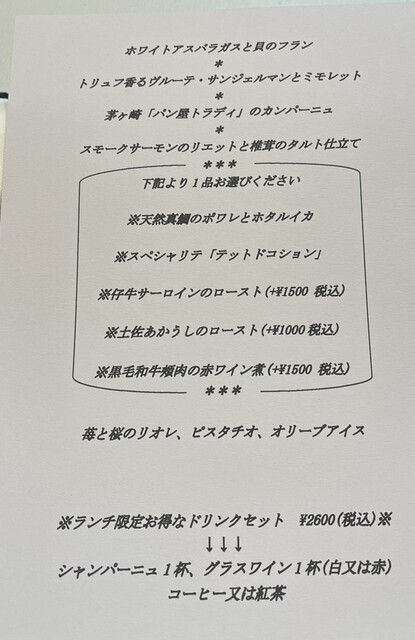 ホワイトアスパラガスと貝のフラン
*
トリュフ香るヴルーテ・サンジェルマンとミモレット
*
茅ヶ崎「パン屋トラディ」のカンパーニュ
*
スモークサーモンのリエットと椎茸のタルト仕立て
***
下記より1品お選びください
※天然真鯛のポワレとホタルイカ
※スペシャリテ「テットドコション」
※仔牛サーロインのロースト(+¥1500 税込)
※土佐あかうしのロースト(+¥1000 税込)
※黒毛和牛頬肉の赤ワイン煮(+¥1500 税込)
***
苺と桜のリオレ、ピスタチオ、オリーブアイス
※ランチ限定お得なドリンクセット ¥2600(税込)※
↓↓↓
シャンパーニュ1杯、グラスワイン1杯(白又は赤)
コーヒー又は紅茶